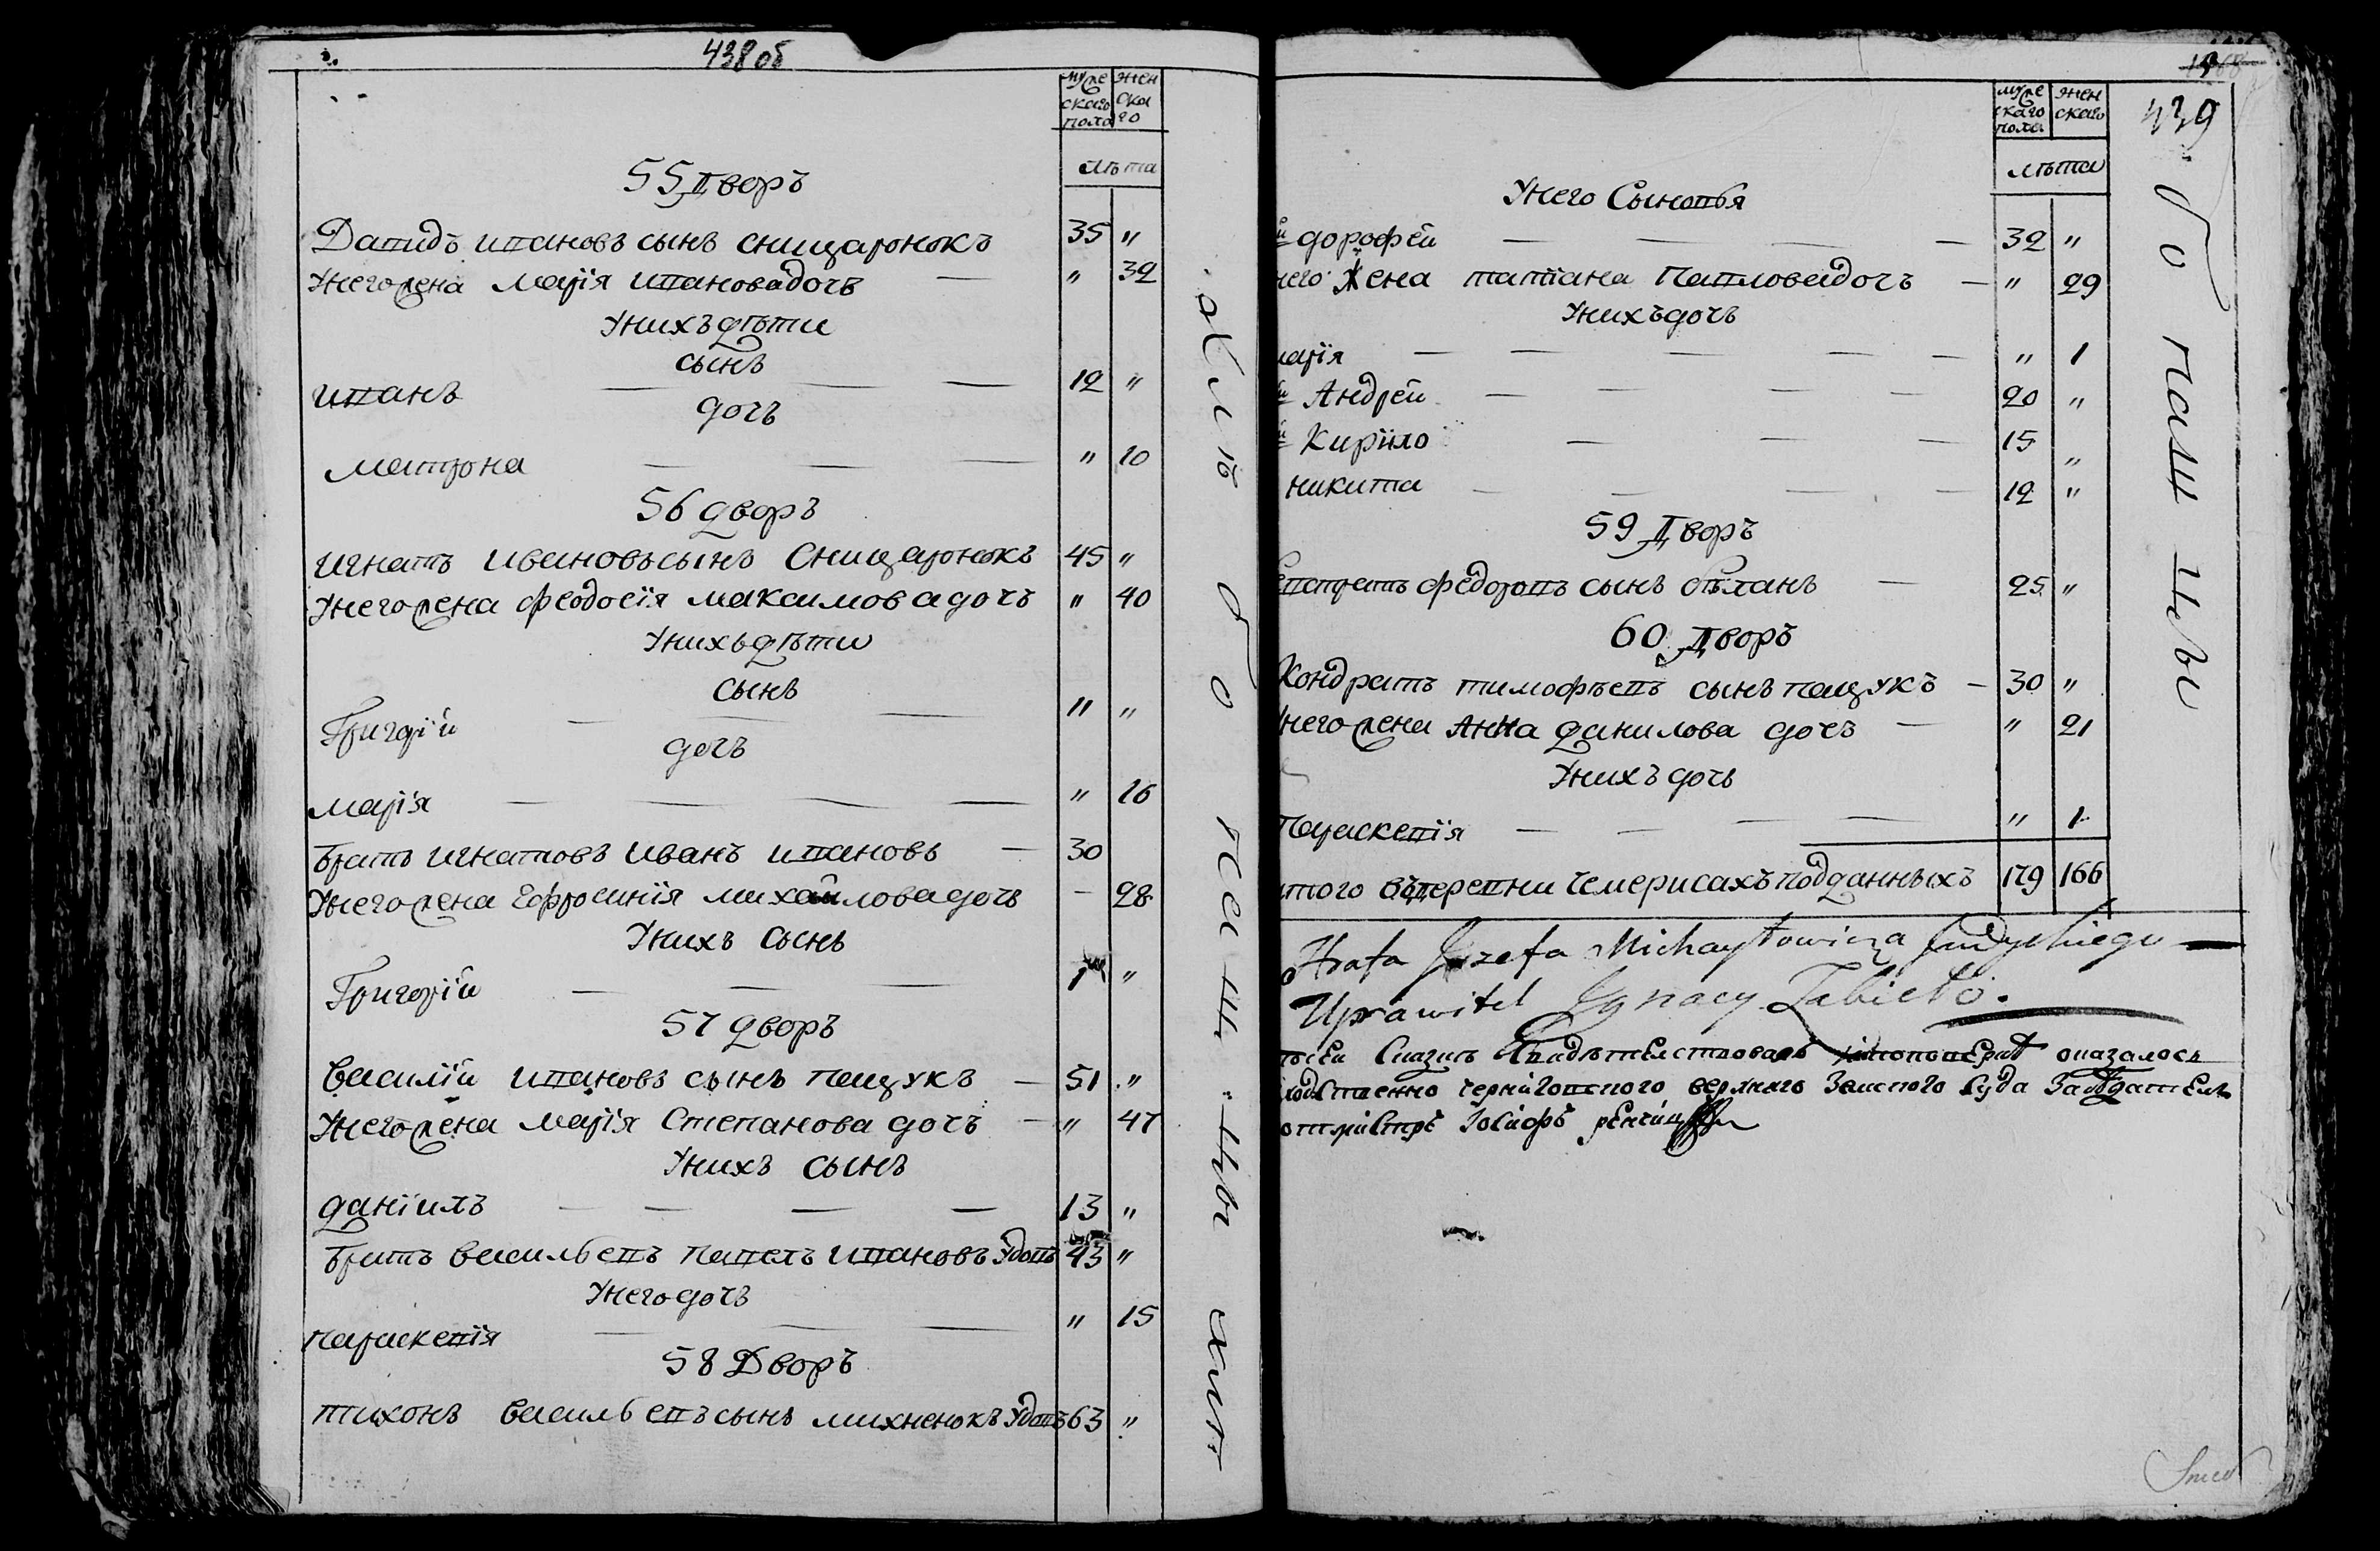 438 об
муже
скаго
пола
жен
ска
го
лѣта
55 Дворъ
Давидъ ивановъ сынъ сницаронокъ 35 "
Унего жена марія иванова дочь " 32
Унихъ дѣти
сынъ
иванъ 12 "
дочь
матрона " 10
56 дворъ
игнатъ ивановъ сынъ Сницаронокъ 45 "
Унего жена феодосія максимова дочь " 40
Унихъ дѣти
сынъ
Григорій 11 "
дочь
марія " 16
братъ игнатовъ иванъ ивановъ 30
Унего жена Ефросинія михайлова дочь - 28
Унихъ сынъ
Григорій 1 "
57 дворъ
василій ивановъ сынъ пацукъ 51 "
Унего жена марія Степанова дочь " 47
Унихъ сынъ
даніилъ 13 "
братъ васильевъ павелъ ивановъ удовъ 43 "
Унего дочь
параскевія " 15
58 Дворъ
тихонъ васильевъ сынъ михненокъ удовъ 63 "
439
муже
скаго
пола
жен
скаго
лѣта
Унего Сыновья
й дорофей 32 "
него жена татіана павлова дочь " 29
Унихъ дочь
марія " 1
й Андрей 20 "
й Кирило 15 "
никита 12 "
59 Дворъ
федоровъ сынъ бѣланъ 25 "
60 Дворъ
Кондратъ тимофѣевъ сынъ пацукъ 30 "
Унего жена Анна данилова дочь " 21
Унихъ дочь
параскевія " 1
итого въ деревни Чемерисахъ подданныхъ 179 166
Hrafa Jozefa Michayłowicza Judyckiego
Uprawitel Ignacy Zabieło.
Свидѣтелствовалъ оказалось
черниговского верхнего Земского Суда Засѣдатель
Іосифъ